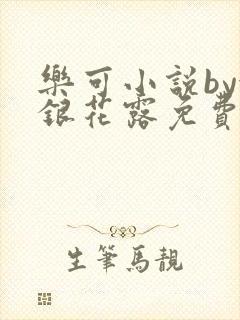 樂可小説by
銀花露免費
生筆馬靚